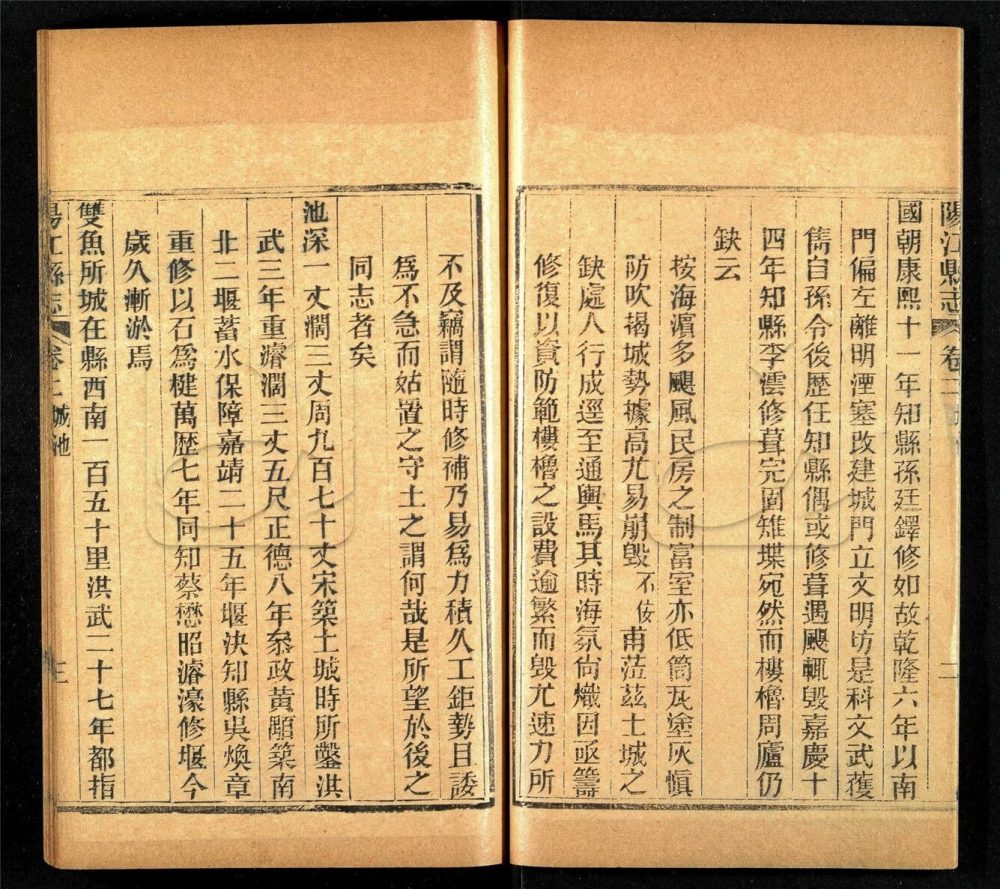 陽江縣志 卷二 二
國朝康熙十一年知縣孫廷鐸修如故乾隆六年以南
門偏左離明湮塞改建城門立文明坊是科文武獲
雋自孫令後歴任知縣偶或修葺遇颶輒毀嘉慶十
四年知縣李澐修葺完固雉堞宛然而樓櫓周廬仍
缺云
按海濵多颶風民房之制富室亦低筒瓦塗灰愼
防吹揭城勢據高尤易崩毀不佞甫蒞茲土城之
缺處人行成逕至通輿馬其時海氛尙熾因亟籌
修復以資防範樓櫓之設費逾繁而毀尤速力所
不及竊謂隨時修補乃易爲力積久工鉅勢且諉
爲不急而姑置之守土之謂何哉是所望於後之
同志者矣
池深一丈濶三丈周九百七十丈宋築土城時所鑿洪
武三年重濬濶三丈五尺正德八年叅政黄顯築南
北二堰蓄水保障嘉靖二十五年堰決知縣吳煥章
重修以石爲楗萬歴七年同知蔡懋昭濬濠修堰今
歲久漸淤焉
雙魚所城在縣西南一百五十里洪武二十七年都指
陽江縣志 卷二 城池 三